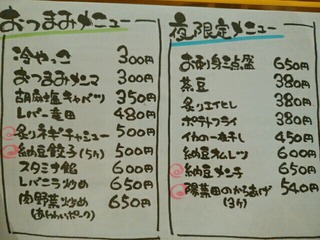 おつまみメニュー
冷やっこ 300円
おつまみメンマ 300円
胡麻塩キャベツ 350円
レバー竜田 480円
炙りネギチャーシュー 500円
納豆餃子(5ケ) 500円
スタミナ餡 600円
レバニラ炒め 650円
肉野菜炒め 650円
夜限定メニュー
お刺身三点盛 650円
茶豆 380円
炙りエイヒレ 380円
ポテトフライ 380円
イカの一夜干し 450円
納豆オムレツ 600円
納豆メンチ 650円
陽菜田のからあげ 540円
(3ケ)